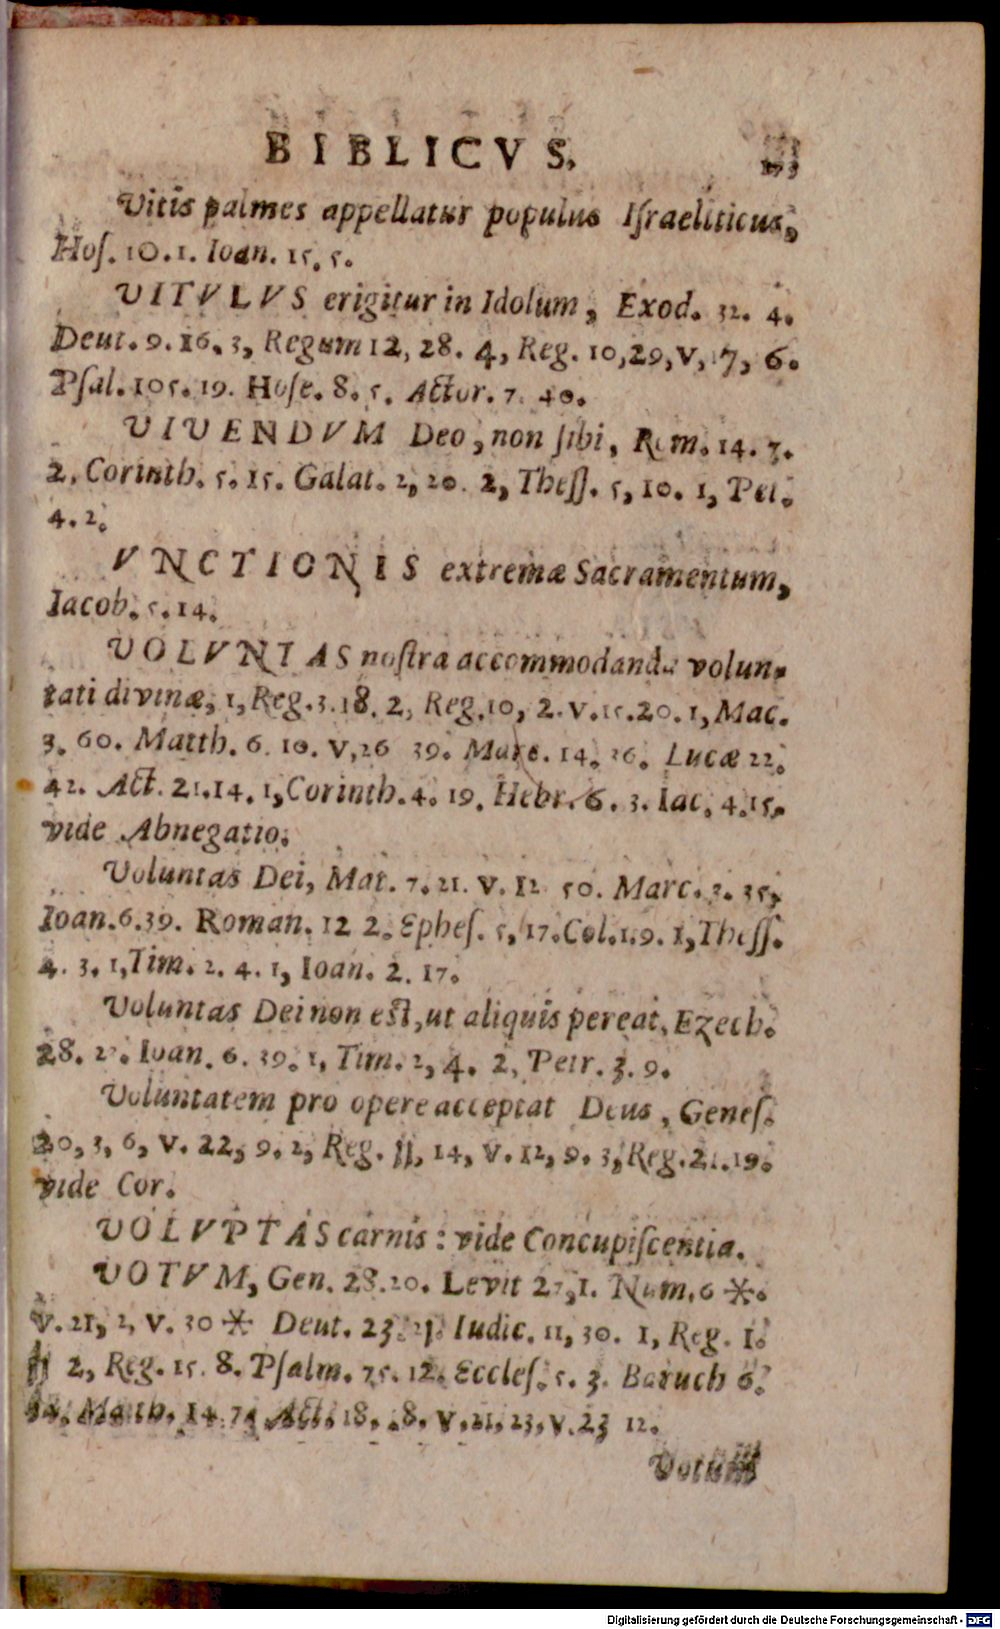 BIBLICVS.
Vitis palmes appellatur populus Iſraeliticus,
Hoſ. 10.1. Ioan. 15. 5.
VITVLVS erigitur in Idolum, Exod. 32. 4.
Deut. 9. 16. 3, Regum 12, 28. 4, Reg. 10,29,V,17, 6.
Pſal. 105. 19. Hoſe. 8. 5. Actor. 7. 40.
VIVENDVM Deo, non ſibi, Rom. 14. 7.
2, Corinth. 5. 15. Galat. 2, 20. 2, Theſſ. 5, 10. 1, Pet.
4. 2.
VNCTIONIS extremæ Sacramentum,
Iacob. 5. 14.
VOLVNTAS noſtra accommodanda volun-
tati divinæ, 1, Reg. 3. 18. 2, Reg. 10, 2. V. 15. 20. 1, Mac.
3. 60. Matth. 6. 10. V, 26 39. Marc. 14. 36. Lucæ 22.
42. Act. 21.14. 1, Corinth. 4. 19. Hebr. 6. 3. Iac. 4.15.
vide Abnegatio.
Voluntas Dei, Mat. 7. 21. V. 12 50. Marc. 3. 35,
Ioan. 6. 39. Roman. 12 2. Epheſ. 5, 17. Col. 1. 9. 1, Theſſ.
4. 3. 1, Tim. 2. 4. 1, Ioan. 2. 17.
Voluntas Dei non eſt, ut aliquis pereat, Ezech.
28. Ioan. 6. 39. 1, Tim. 2, 4. 2, Petr. 3. 9.
Voluntatem pro opere acceptat Deus, Geneſ.
20, 3, 6, V. 22, 9. 2, Reg. 11, 14, V. 12, 9. 3, Reg. 21. 19.
vide Cor.
VOLVPTAS carnis: vide Concupiſcentia.
VOTVM, Gen. 28. 20. Levit 27,1. Num. 6 *.
V. 21, 2, V. 30 * Deut. 23. 21. Iudic. 11, 30. 1, Reg. 1.
11 2, Reg. 15. 8. Pſalm. 75. 12. Eccleſ. 5. 3. Baruch 6.
Matth. 14. 7. Act. 18, V, 21, 23, V. 23 12.
Votum
Digitalisierung gefördert durch die Deutsche Forschungsgemeinschaft - DFG